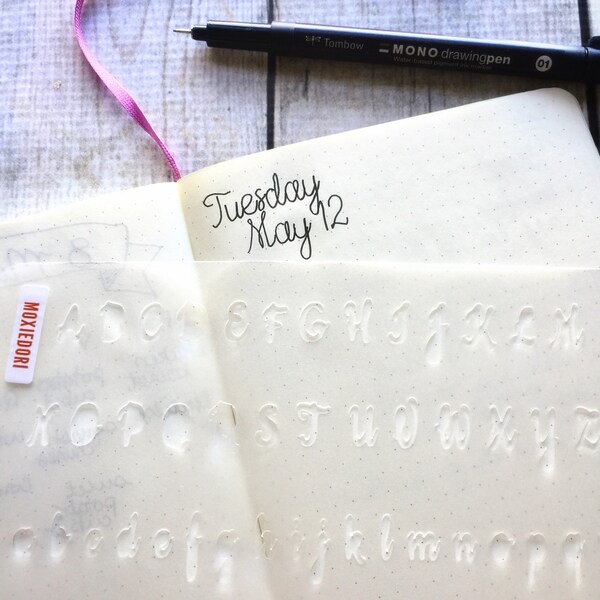 Tombow MONO drawingpen 01
Tuesday
May 12
8 am
MOXIEDORI
A B C D E F G H I J K L M
N O P Q R S T U V W X Y Z
a b c d e f g h i j k l m n o p q